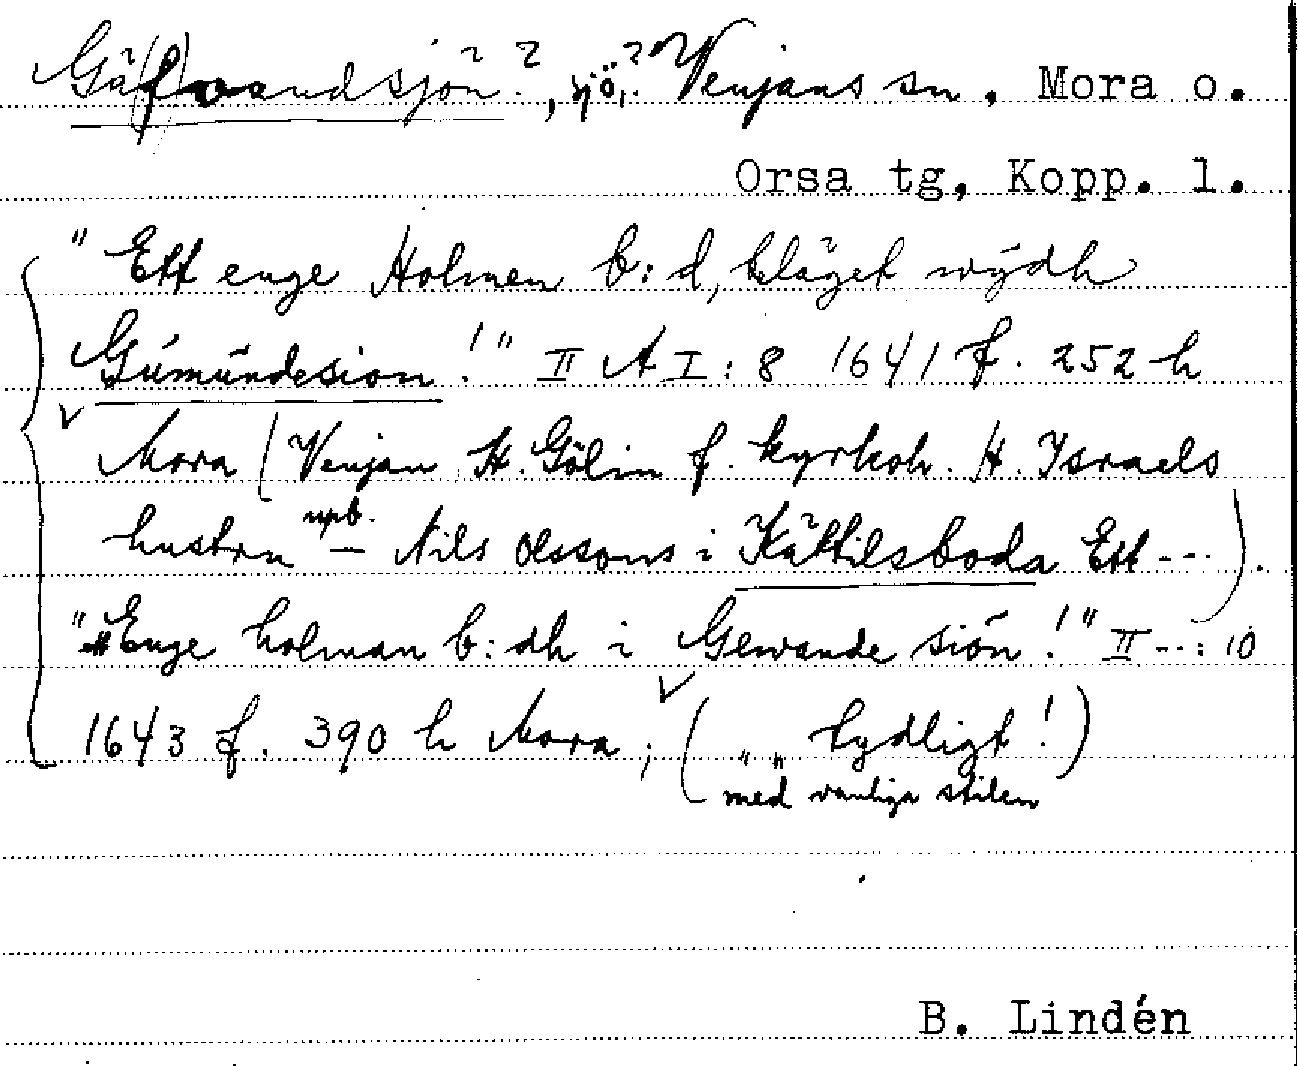 Gä(f)vandsjön?, sjö,? Venjans sn. Mora o.
Orsa tg, Kopp. l.
"Ett enge Holmen b:d, beläget wýdh
Gúmúndesion!" II A I:8 1641 f. 252 h
Mora (Venjan H. Gölin f. kyrkoh. H. Israels
hustru upb. — Nils Olssons i Kättilsboda Ett ---).
"Enge holman b:dh i Gewande siön!" II --: 10
1643 f. 390 h Mora; ( " " tydligt!)
med vanliga stilen
B. Lindén